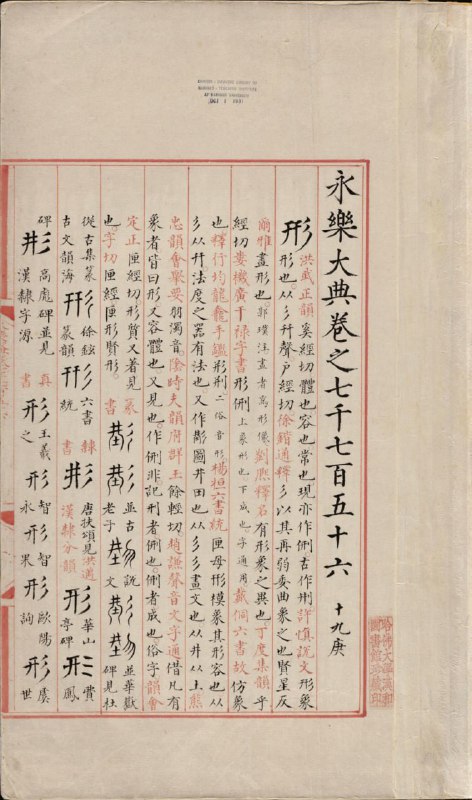 永樂大典卷之七千七百五十六 十九庚
形 洪武正韻奚經切體也容也常也現亦作侀古作㓝許慎說文形象
形也从彡幵聲戶經切徐鍇通釋彡以其再弱委曲象之也賢星反
爾雅畫形也郭璞注畫者為形像劉熙釋名有形象之異也丁度集韻乎
經切婁機廣干祿字書形侀上象形也下成也字通用戴侗六書故仿象
也釋行均龍龕手鑑形刑二俗音形楊桓六書統匣母形模象其形容也从
彡从幵法度之器有法也又作彫圖井田也从彡彡畫文也从井从土熊
忠韻會舉要羽濁音陰時夫韻府群玉餘輕切趙謙聲音文字通借凡有
象者皆曰形又容體也又見也作侀非記刑者侀也侀者成也俗字韻會
定正匣經切形賢又着見也字切匣經匣形賢形 篆書 並古老子 說文 並華嶽碑見杜
從古集篆古文韻海 徐鉉篆韻 六書統 隸書 唐扶頌見洪适漢隸分韻 形 華山亭碑
碑 高彪碑並見漢隸字源 真書 形 王羲之 形 智永 形 智果 形 歐陽詢 形 虞世